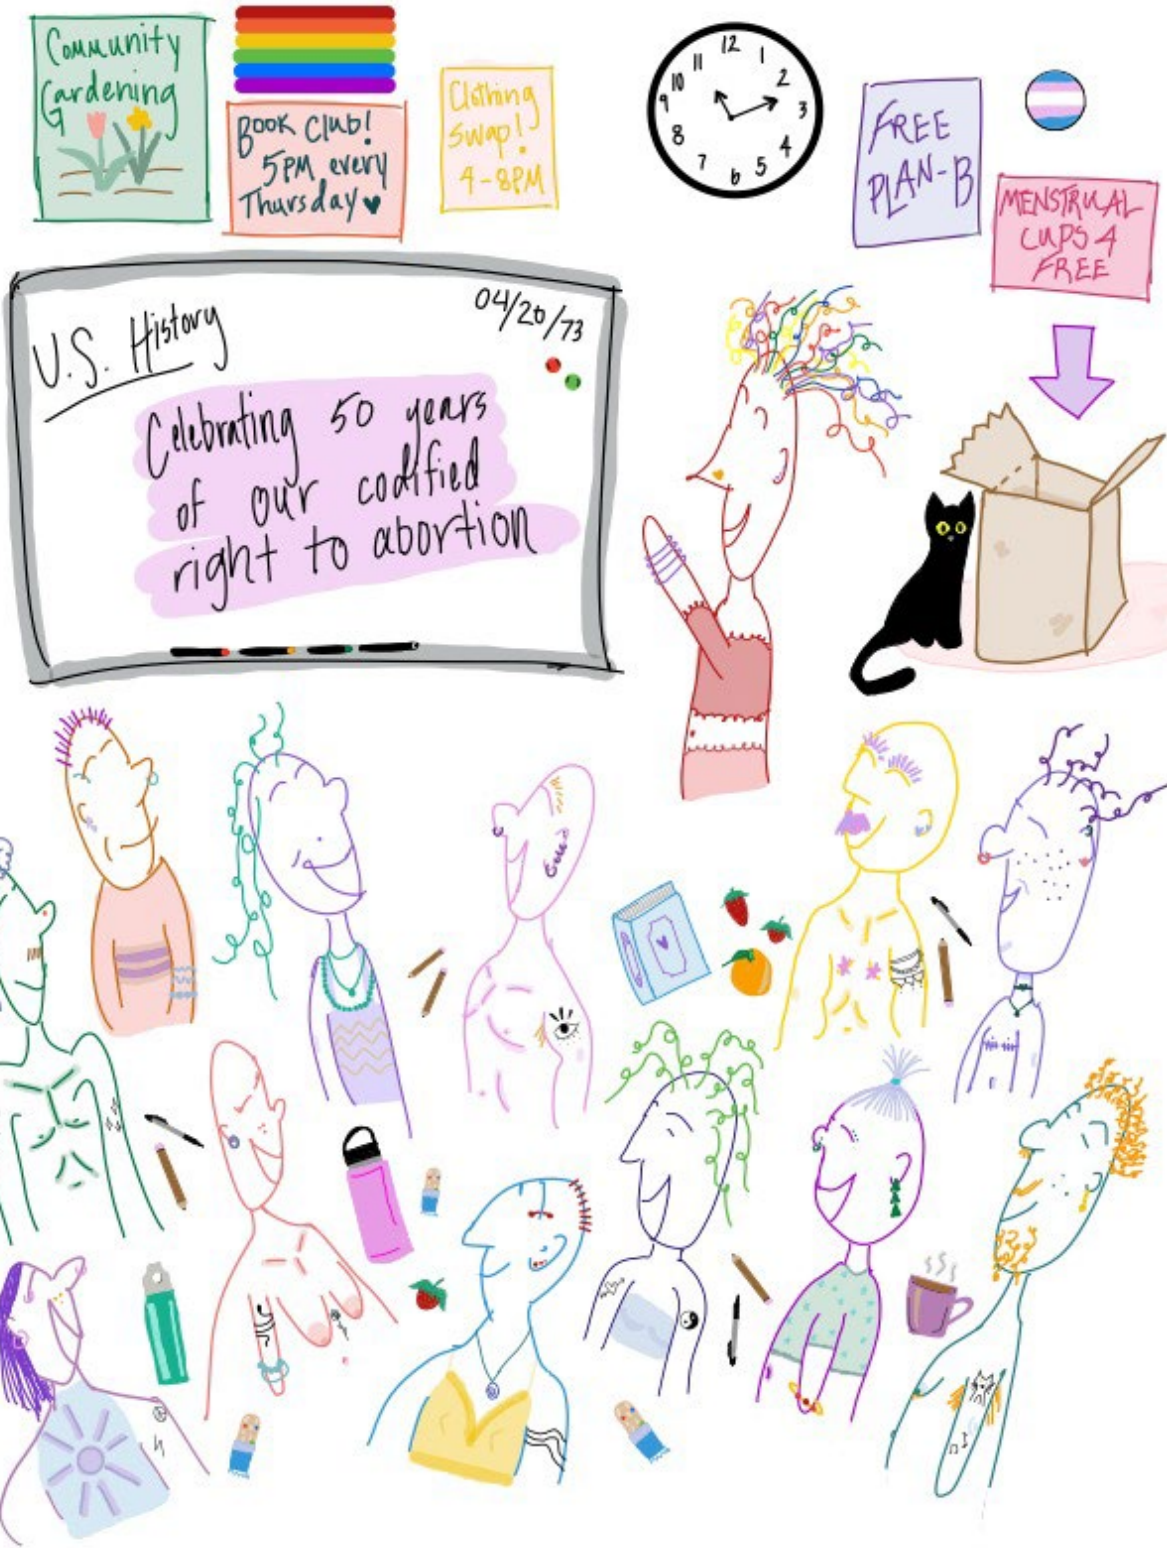 Community
Gardening
BOOK Club!
5PM every
Thursday♥
Clothing
Swap!
4-8PM
12
1
2
3
4
5
6
7
8
9
10
11
FREE
PLAN-B
MENSTRUAL
CUPS 4
FREE
U.S. History
04/20/73
Celebrating 50 years
of our codified
right to abortion